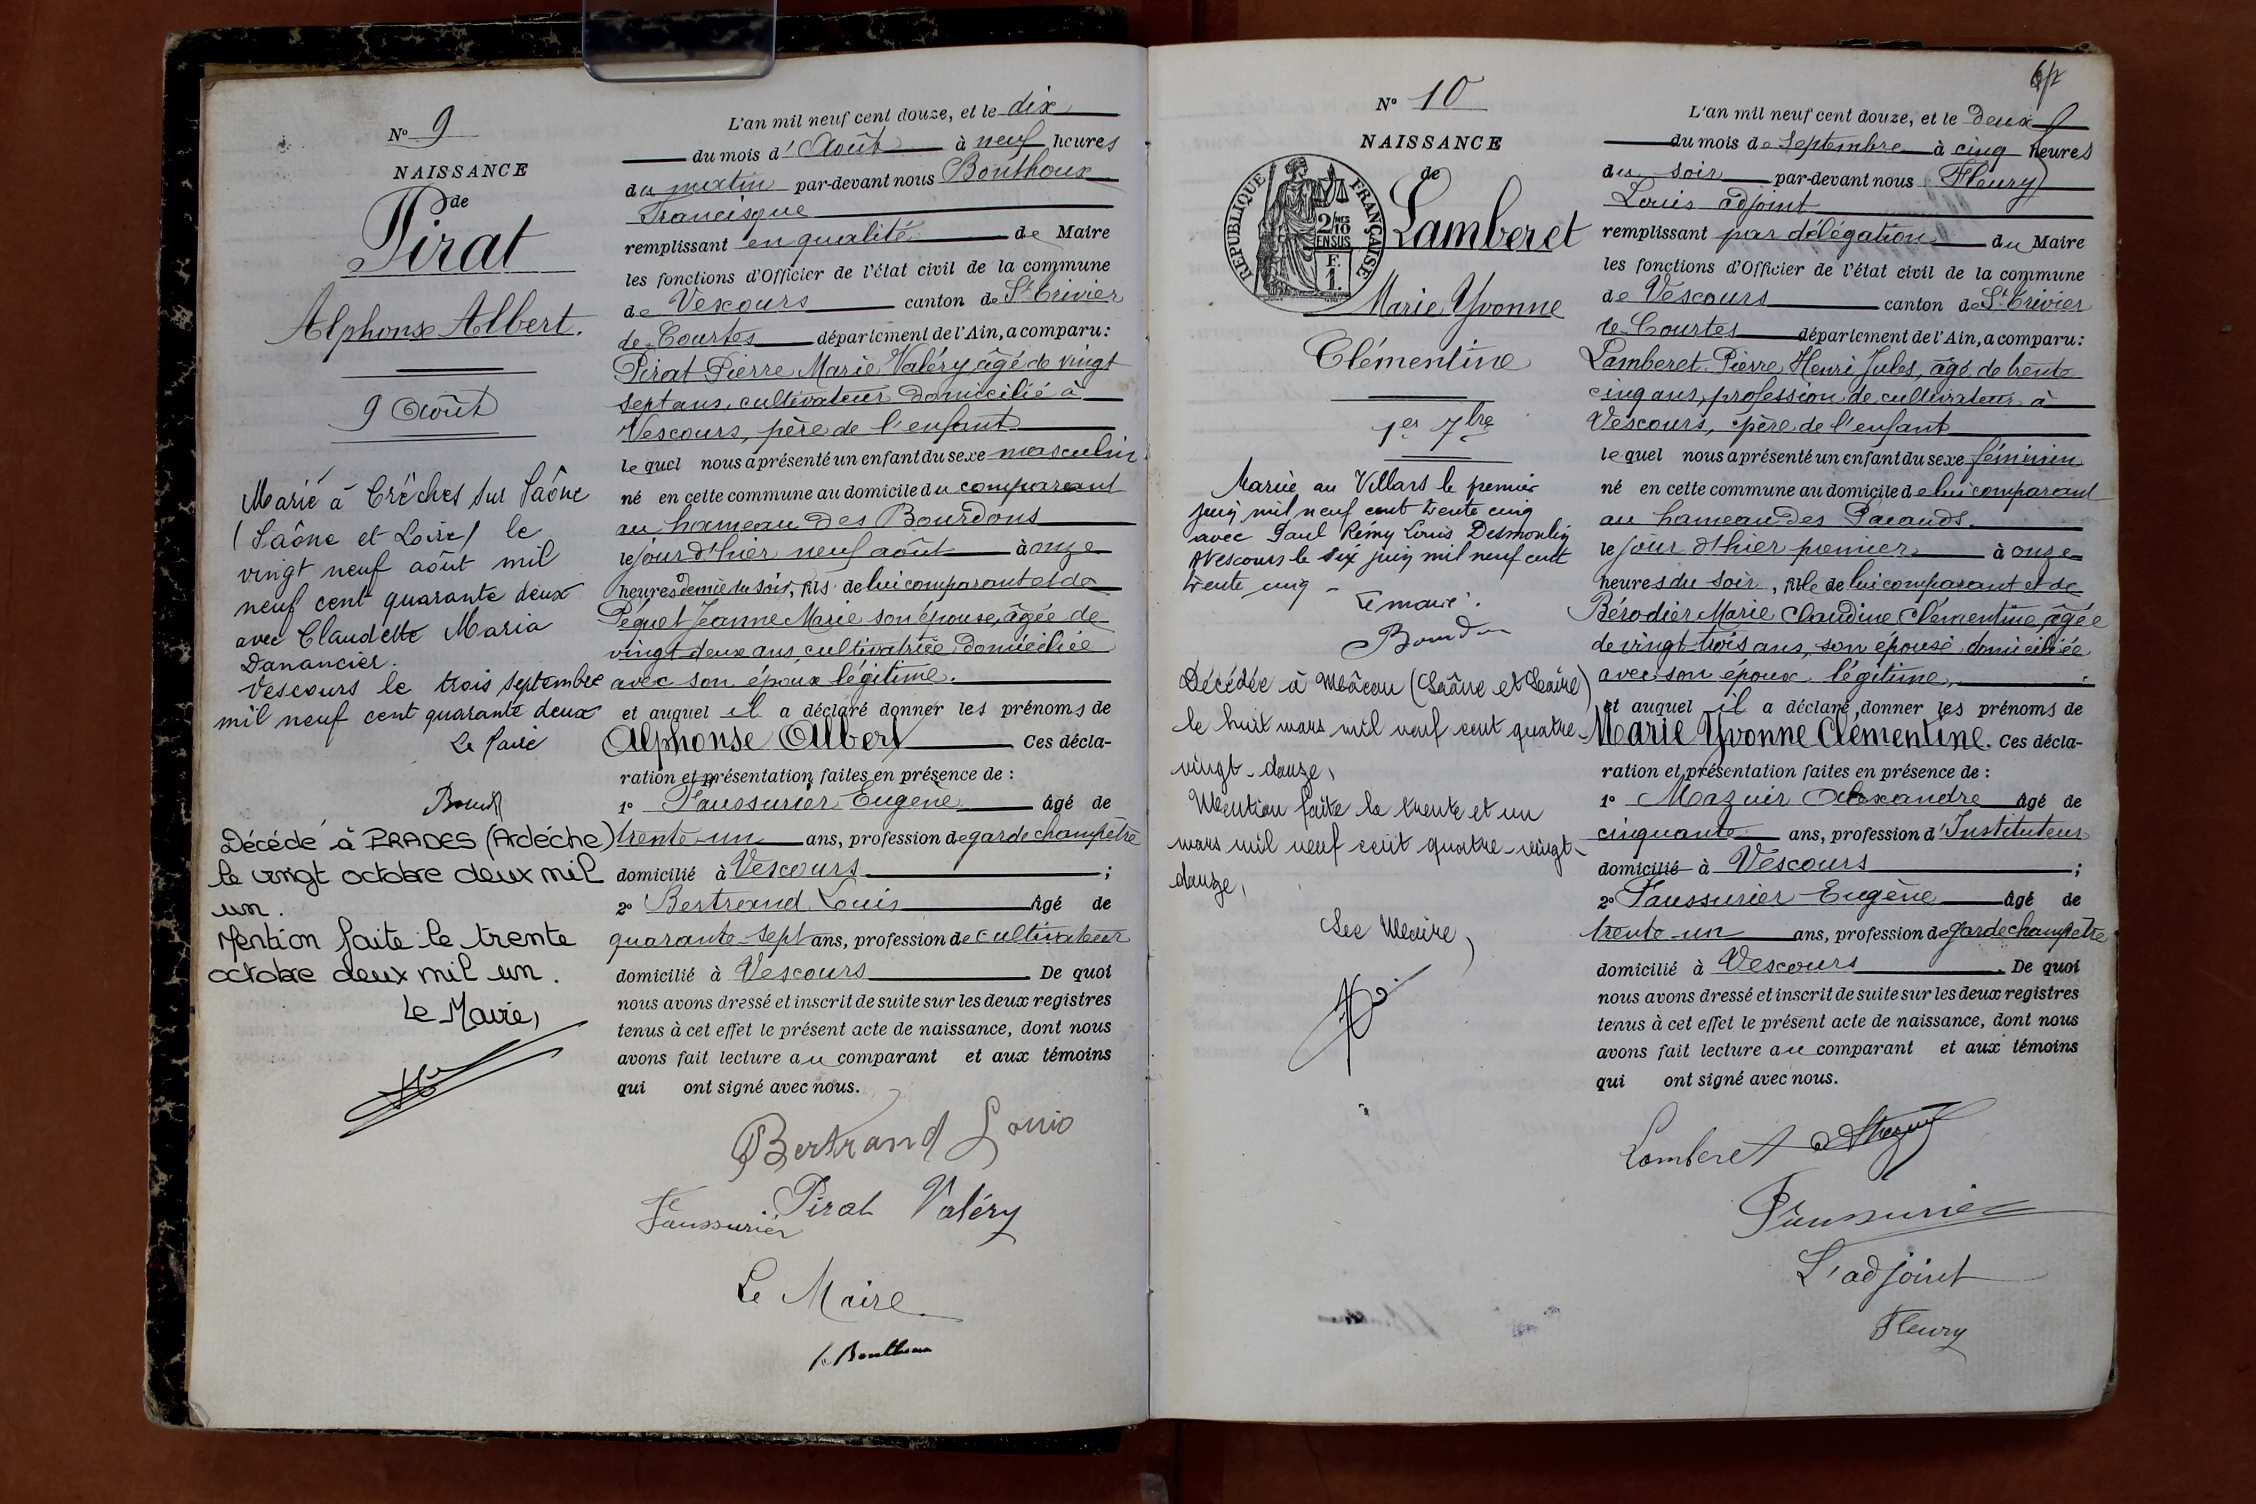 N° 9
NAISSANCE
de
Pirat
Alphonse Albert.
9 Août
Marié à Crèches sur Saône
(Saône et Loire) le
vingt neuf août mil
neuf cent quarante deux
avec Claudette Maria
Danancier.
Vescours le trois septembre
mil neuf cent quarante deux
Le Maire
Décédé à PRADES (Ardéche)
le vingt octobre deux mil
un.
Mention faite le trente
octobre deux mil un.
Le Maire,
L'an mil neuf cent douze, et le dix
du mois d'Août à neuf heures
du matin par-devant nous Bouthoux
Francisque
remplissant en qualité de Maire
les fonctions d'Officier de l'état civil de la commune
de Vescours canton de St Trivier
de Courtes département de l'Ain, a comparu:
Pirat Pierre Marie Valéry, âgé de vingt
sept ans, cultivateur domicilié à
Vescours, père de l'enfant
lequel nous a présenté un enfant du sexe masculin
né en cette commune au domicile du comparant
au hameau des Bourdons
le jour d'hier neuf août à onze
heures demie du soir, fils de lui comparant et de
Péquet Jeanne Marie son épouse, âgée de
vingt deux ans, cultivatrice domiciliée
avec son époux légitime.
et auquel il a déclaré donner les prénoms de
Alphonse Albert Ces décla-
ration et présentation faites en présence de :
1° Faussurier Eugène âgé de
trente-un ans, profession de garde champêtre
domicilié à Vescours ;
2° Bertrand Louis âgé de
quarante-sept ans, profession de cultivateur
domicilié à Vescours. De quoi
nous avons dressé et inscrit de suite sur les deux registres
tenus à cet effet le présent acte de naissance, dont nous
avons fait lecture au comparant et aux témoins
qui ont signé avec nous.
Bertrand Louis
Pirat Valéry
Faussurier
Le Maire
f. Bouthoux
N° 10
NAISSANCE
de
RÉPUBLIQUE FRANÇAISE
2/10
EN SUS
F.
1.
Lamberet
Marie Yvonne
Clémentine
1er 7bre
Mariée au Villars le premier
juin mil neuf cent trente cinq
avec Paul Rémy Louis Desmoulin
A Vescours le six juin mil neuf cent
trente cinq -
Le maire.
Décédée à Mâcon (Saône et Loire)
le huit mars mil neuf cent quatre-
vingt-douze,
Mention faite le trente et un
mars mil neuf cent quatre-vingt-
douze,
Le Maire,
L'an mil neuf cent douze, et le deux
du mois de septembre à cinq heures
du soir par-devant nous Fleury
Louis adjoint
remplissant par délégation du Maire
les fonctions d'Officier de l'état civil de la commune
de Vescours canton de St Trivier
de Courtes département de l'Ain, a comparu:
Lamberet Pierre Henri Jules, âgé de trente
cinq ans, profession de cultivateur à
Vescours, père de l'enfant
lequel nous a présenté un enfant du sexe féminin
né en cette commune au domicile de lui comparant
au hameau des Pacauds.
le jour d'hier premier à onze
heures du soir, fille de lui comparant et de
Bérodier Marie Claudine Clémentine, âgée
de vingt trois ans, son épouse domiciliée
avec son époux légitime,
et auquel il a déclaré donner les prénoms de
Marie Yvonne Clémentine. Ces décla-
ration et présentation faites en présence de :
1° Mazuir Alexandre âgé de
cinquante ans, profession d'Instituteur
domicilié à Vescours ;
2° Faussurier Eugène âgé de
trente-un ans, profession de garde champêtre
domicilié à Vescours. De quoi
nous avons dressé et inscrit de suite sur les deux registres
tenus à cet effet le présent acte de naissance, dont nous
avons fait lecture au comparant et aux témoins
qui ont signé avec nous.
Lamberet
Faussurier
L'adjoint
Fleury